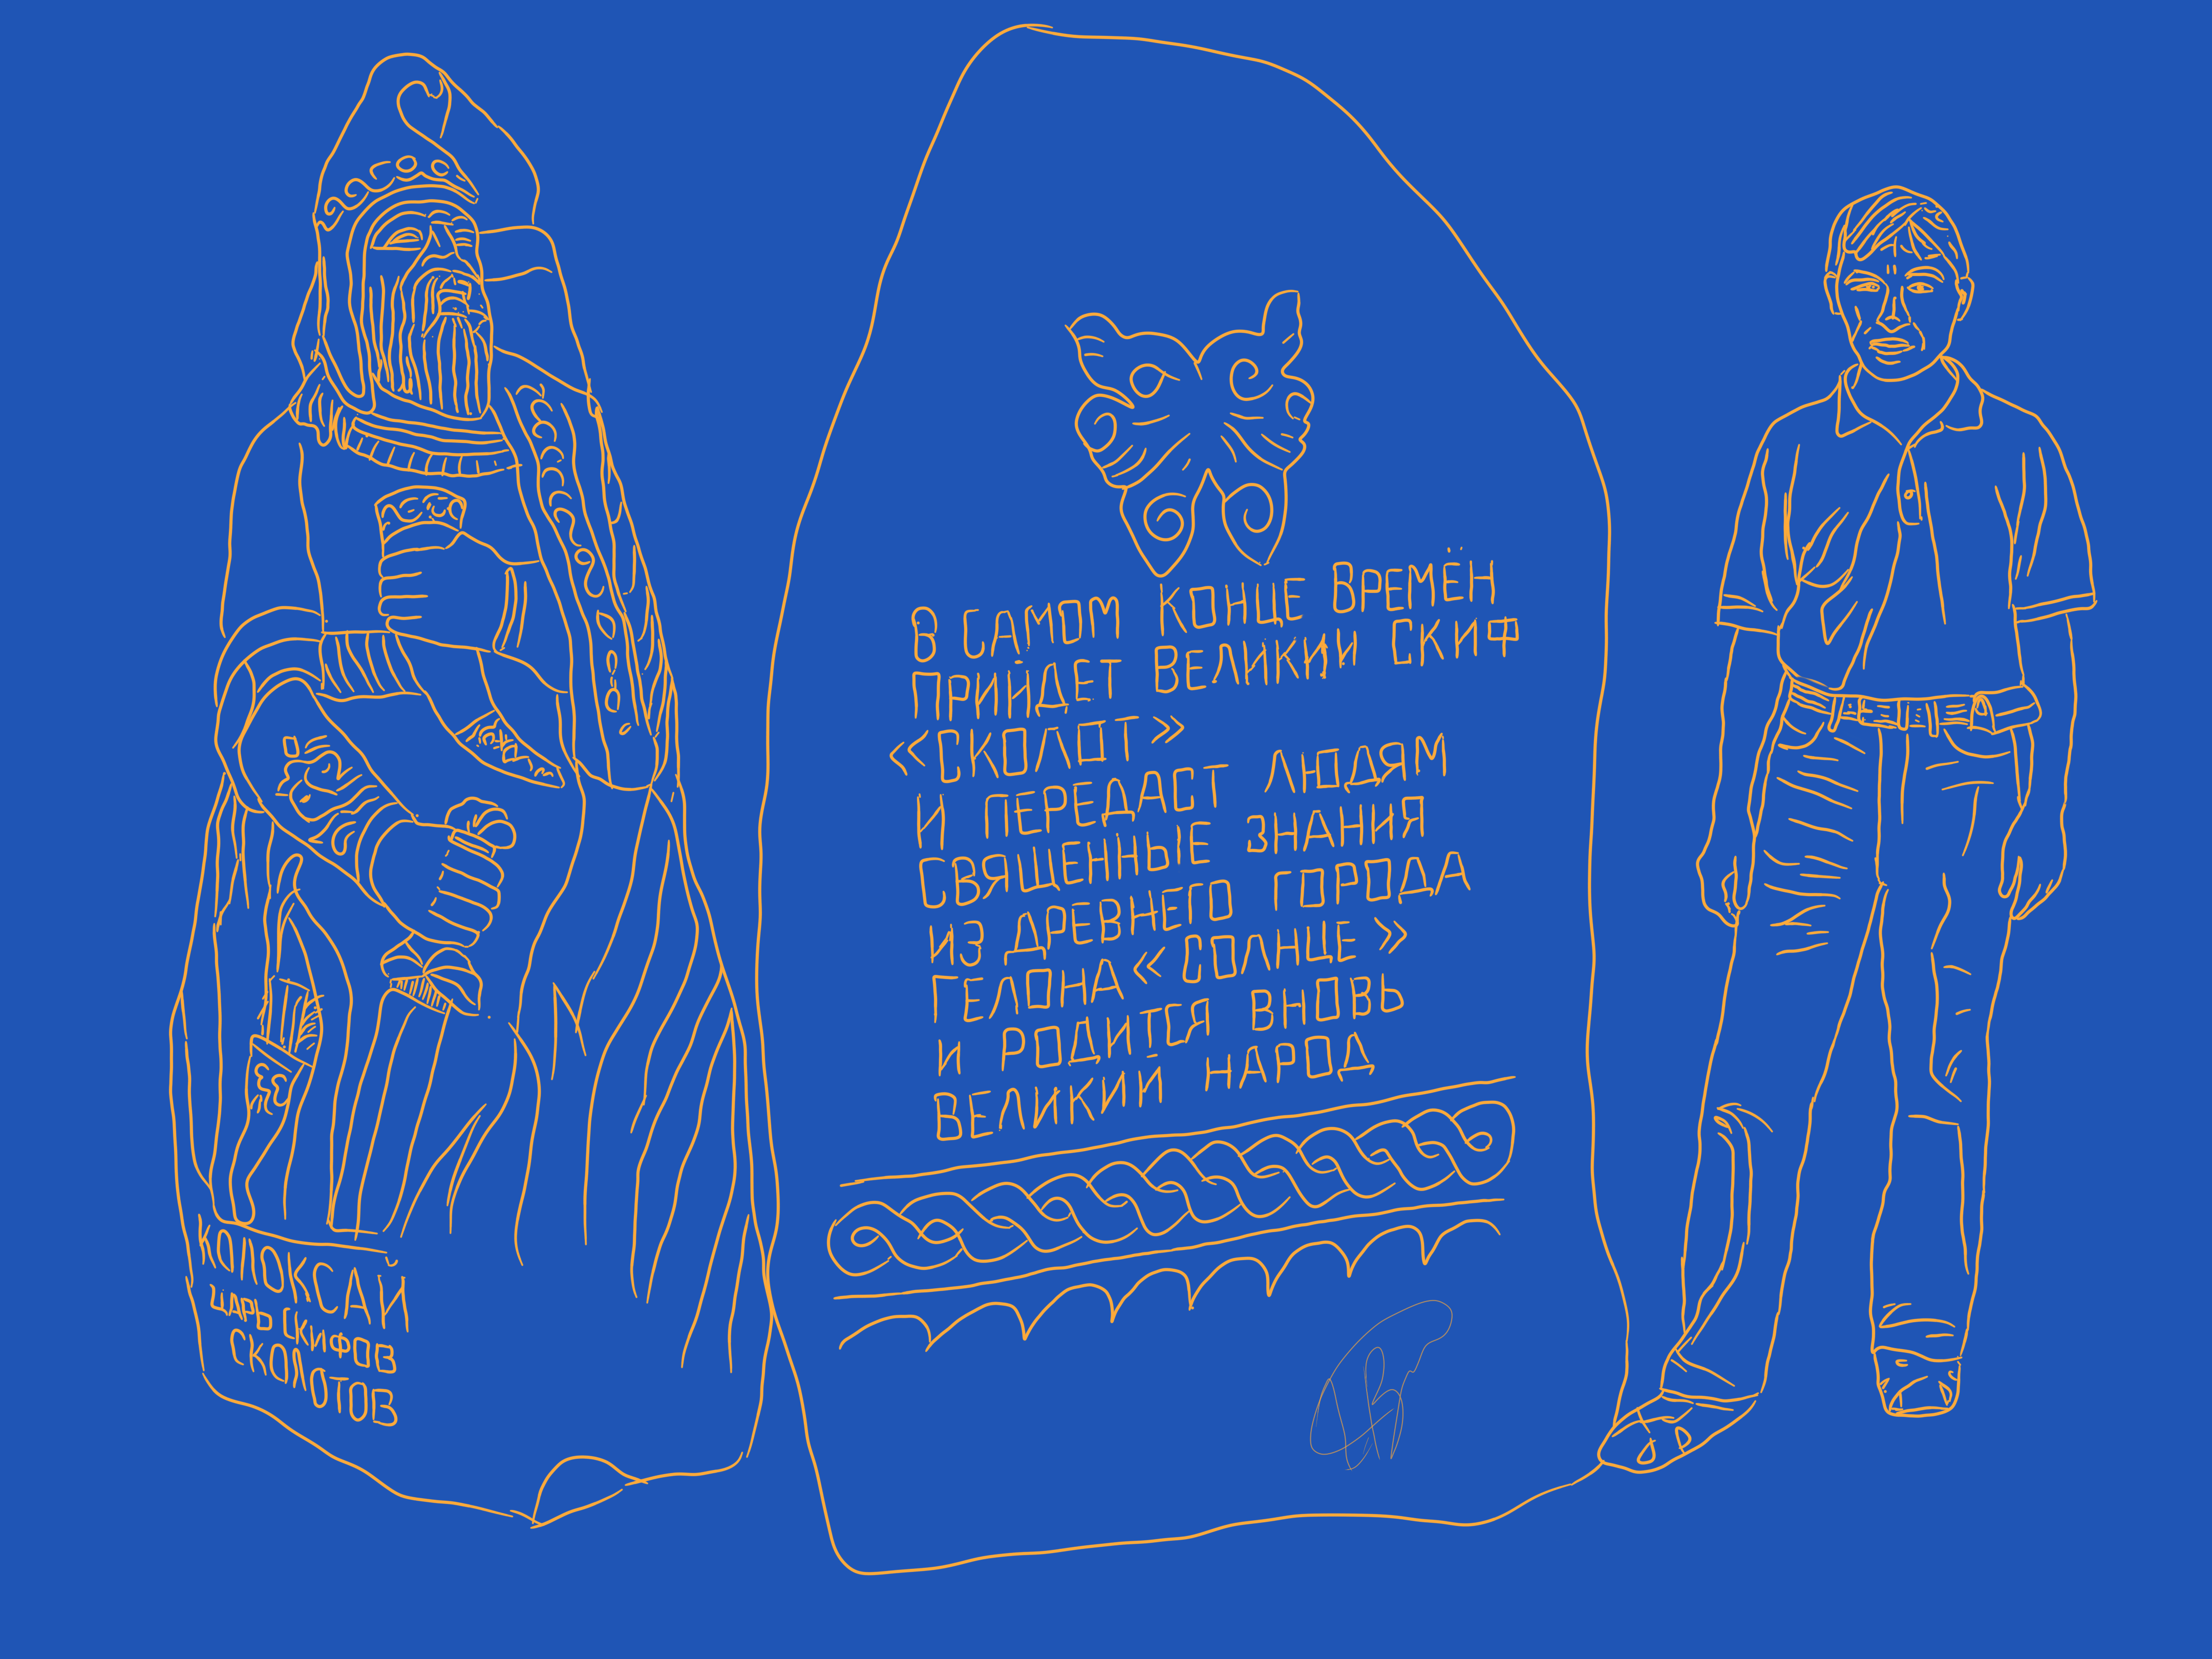 КОЛОКСАЙ
ЦАРЬ СКИФОВ
СКОЛОТОВ
В САМОМ КОНЦЕ ВРЕМЁН
ПРИЙДЕТ ВЕЛИКИЙ СКИФ
«СКОЛОТ»
И ПЕРЕДАСТ ЛЮДЯМ
СВЯЩЕННЫЕ ЗНАНИЯ
ИЗ ДРЕВНЕГО ГОРОДА
ГЕЛОНА «СОЛНЦЕ»
И РОДИТСЯ ВНОВЬ
ВЕЛИКИЙ НАРОД